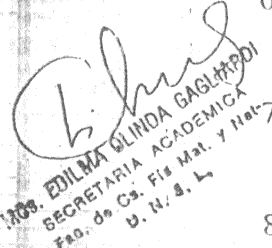 EDILMA OLINDA GAGLIARDI
SECRETARIA ACADEMICA
Fac. de Cs. Fis Mat. y Nat.
U. N. S. L.